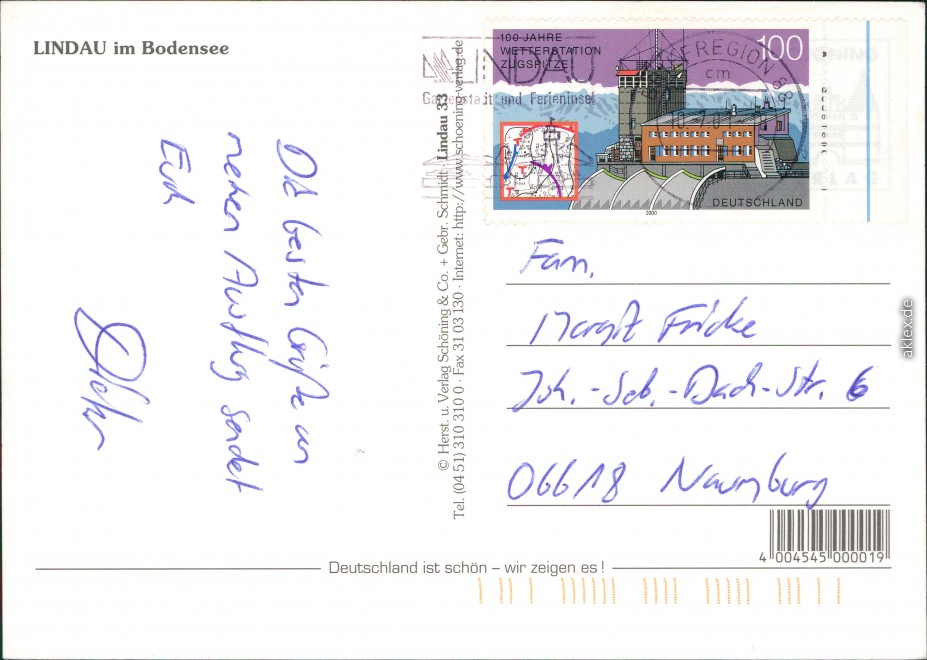 LINDAU im Bodensee
Die besten Grüße von
meinem Ausflug sendet
Euch
© Herst. u. Verlag Schöning & Co. + Gebr. Schmidt · Lindau 33
Tel. (04 51) 310 310 0 · Fax 31 03 130 · Internet: http://www.schoening-verlag.de
100 JAHRE
WETTERSTATION
ZUGSPITZE
100
DEUTSCHLAND
2000
LINDAU
Gartenstadt und Ferieninsel
Fam.
Margit Fricke
Joh.-Seb.-Bach-Str. 6
06618 Naumburg
4 004545 000019
Deutschland ist schön – wir zeigen es !
aklex.de